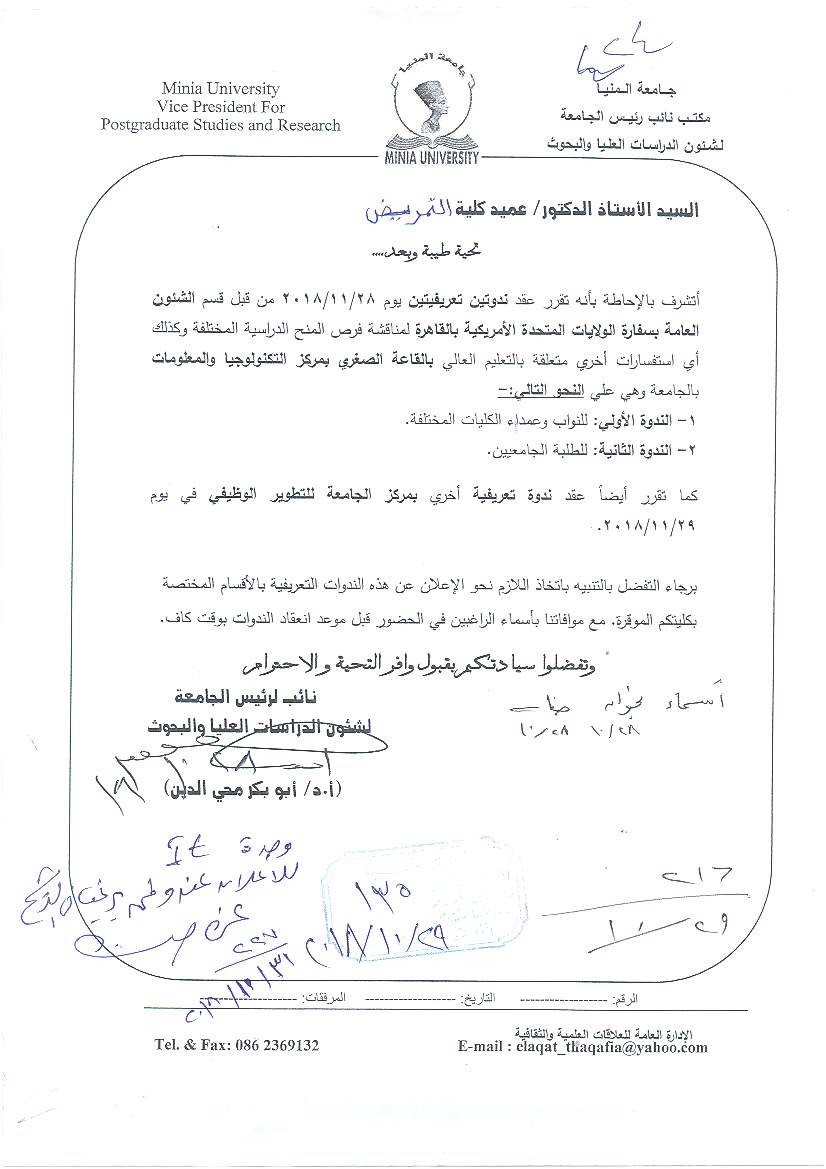 Minia University
Vice President For
Postgraduate Studies and Research
جامعة المنيا
MINIA UNIVERSITY
جامعة المنيا
مكتب نائب رئيس الجامعة
لشئون الدراسات العليا والبحوث
السيد الأستاذ الدكتور/ عميد كلية التمريض
تحية طيبة وبعد....
أتشرف بالإحاطة بأنه تقرر عقد ندوتين تعريفيتين يوم ٢٠١٨/١١/٢٨ من قبل قسم الشئون
العامة بسفارة الولايات المتحدة الأمريكية بالقاهرة لمناقشة فرص المنح الدراسية المختلفة وكذلك
أي استفسارات أخري متعلقة بالتعليم العالي بالقاعة الصغري بمركز التكنولوجيا والمعلومات
بالجامعة وهي علي النحو التالي:-
١- الندوة الأولي: للنواب وعمداء الكليات المختلفة.
٢- الندوة الثانية: للطلبة الجامعيين.
كما تقرر أيضاً عقد ندوة تعريفية أخري بمركز الجامعة للتطوير الوظيفي في يوم
٢٠١٨/١١/٢٩.
برجاء التفضل بالتنبيه باتخاذ اللازم نحو الإعلان عن هذه الندوات التعريفية بالأقسام المختصة
بكليتكم الموقرة. مع موافاتنا بأسماء الراغبين في الحضور قبل موعد انعقاد الندوات بوقت كاف.
وتفضلوا سيادتكم بقبول وافر التحية والاحترام
نائب لرئيس الجامعة
لشئون الدراسات العليا والبحوث
(أ.د/ أبو بكر محي الدين)
أسماء
١٠/٢٨ ١٠/٢٨
وحدة It
للاعلان
١٣٥
٢٠١٨/١٠/٢٩
٢١٦
١٠/٢٩
٢٢٧
٢٠١٨/١٠/٣١
الرقم: ------------------ التاريخ: ------------------ المرفقات: ------------------
الإدارة العامة للعلاقات العلمية والثقافية
Tel. & Fax: 086 2369132
E-mail : elaqat_thaqafia@yahoo.com